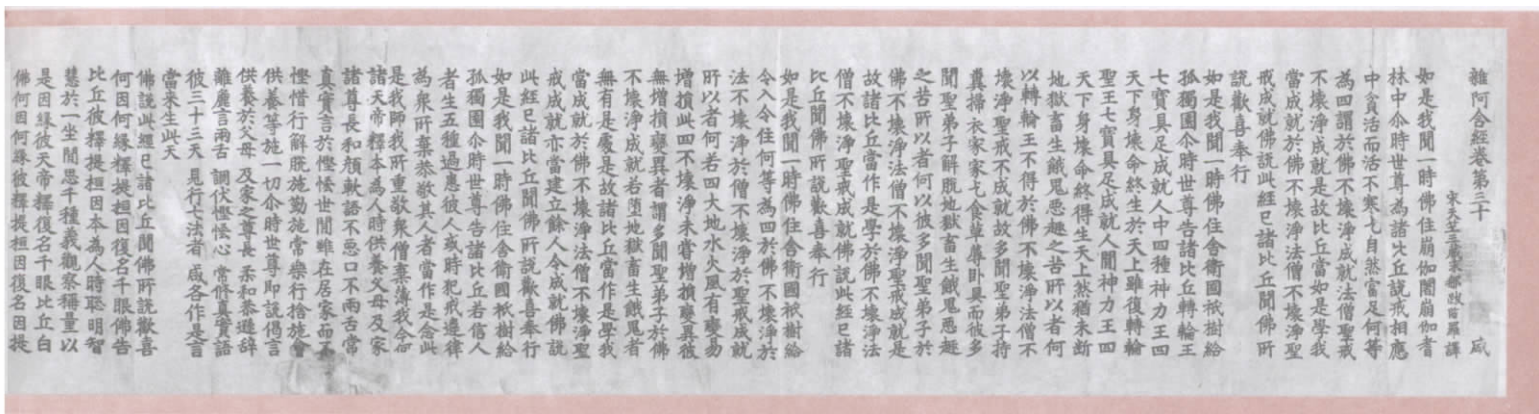 雜阿含經卷第三十 盛
宋天竺三藏求那跋陀羅譯
如是我聞一時佛住崩伽闍崩伽耆
林中尒時世尊為諸比丘說戒相應
中貪活而活不寒乞自然富足何等
為四謂於佛不壞淨成就法僧聖戒
不壞淨成就是故比丘當如是學我
當成就於佛不壞淨法僧不壞淨聖
戒成就佛說此經已諸比丘聞佛所
說歡喜奉行
如是我聞一時佛住舍衛國祇樹給
孤獨園尒時世尊告諸比丘轉輪王
七寶具足成就人中四種神力王四
天下身壞命終生於天上雖復轉輪
聖王七寶具足成就人間神力王四
天下身壞命終得生天上然猶未斷
地獄畜生餓鬼惡趣之苦所以者何
以轉輪王不得於佛不壞淨法僧不
壞淨聖戒不成就故多聞聖弟子持
糞掃衣家家乞食草蓐卧具而彼多
聞聖弟子解脫地獄畜生餓鬼惡趣
之苦所以者何以彼多聞聖弟子於
佛不壞淨法僧不壞淨聖戒成就是
故諸比丘當作是學於佛不壞淨法
僧不壞淨聖戒成就佛說此經已諸
比丘聞佛所說歡喜奉行
如是我聞一時佛住舍衛國祇樹給
令入令住何等為四於佛不壞淨於
法不壞淨於僧不壞淨於聖戒成就
所以者何若四大地水火風有變易
增損此四不壞淨未嘗增損變異彼
無增損變異者謂多聞聖弟子於佛
不壞淨成就若墮地獄畜生餓鬼者
無有是處是故諸比丘當作是學我
當成就於佛不壞淨法僧不壞淨聖
戒成就亦當建立餘人令成就佛說
此經已諸比丘聞佛所說歡喜奉行
如是我聞一時佛住舍衛國祇樹給
孤獨園尒時世尊告諸比丘若信人
者生五種過患彼人或時犯戒違律
為衆所棄恭敬其人者當作是念此
是我師我所重敬衆僧棄薄我今何
諸天帝釋本為人時供養父母及家
諸尊長和顏軟語不惡口不兩舌常
真實言於慳悋世間雖在居家而不
慳惜行解脫施勤施常樂行捨施會
供養等施一切尒時世尊即說偈言
供養於父母 及家之尊長 柔和恭遜辞
離麁言兩舌 調伏慳悋心 常修真實語
彼三十三天 見行七法者 咸各作是言
當来生此天
佛說此經已諸比丘聞佛所說歡喜
何因何緣釋提桓因復名千眼佛告
比丘彼釋提桓因本為人時聰明智
慧於一坐間思千種義觀察稱量以
是因緣彼天帝釋復名千眼比丘白
佛何因何緣彼釋提桓因復名因提